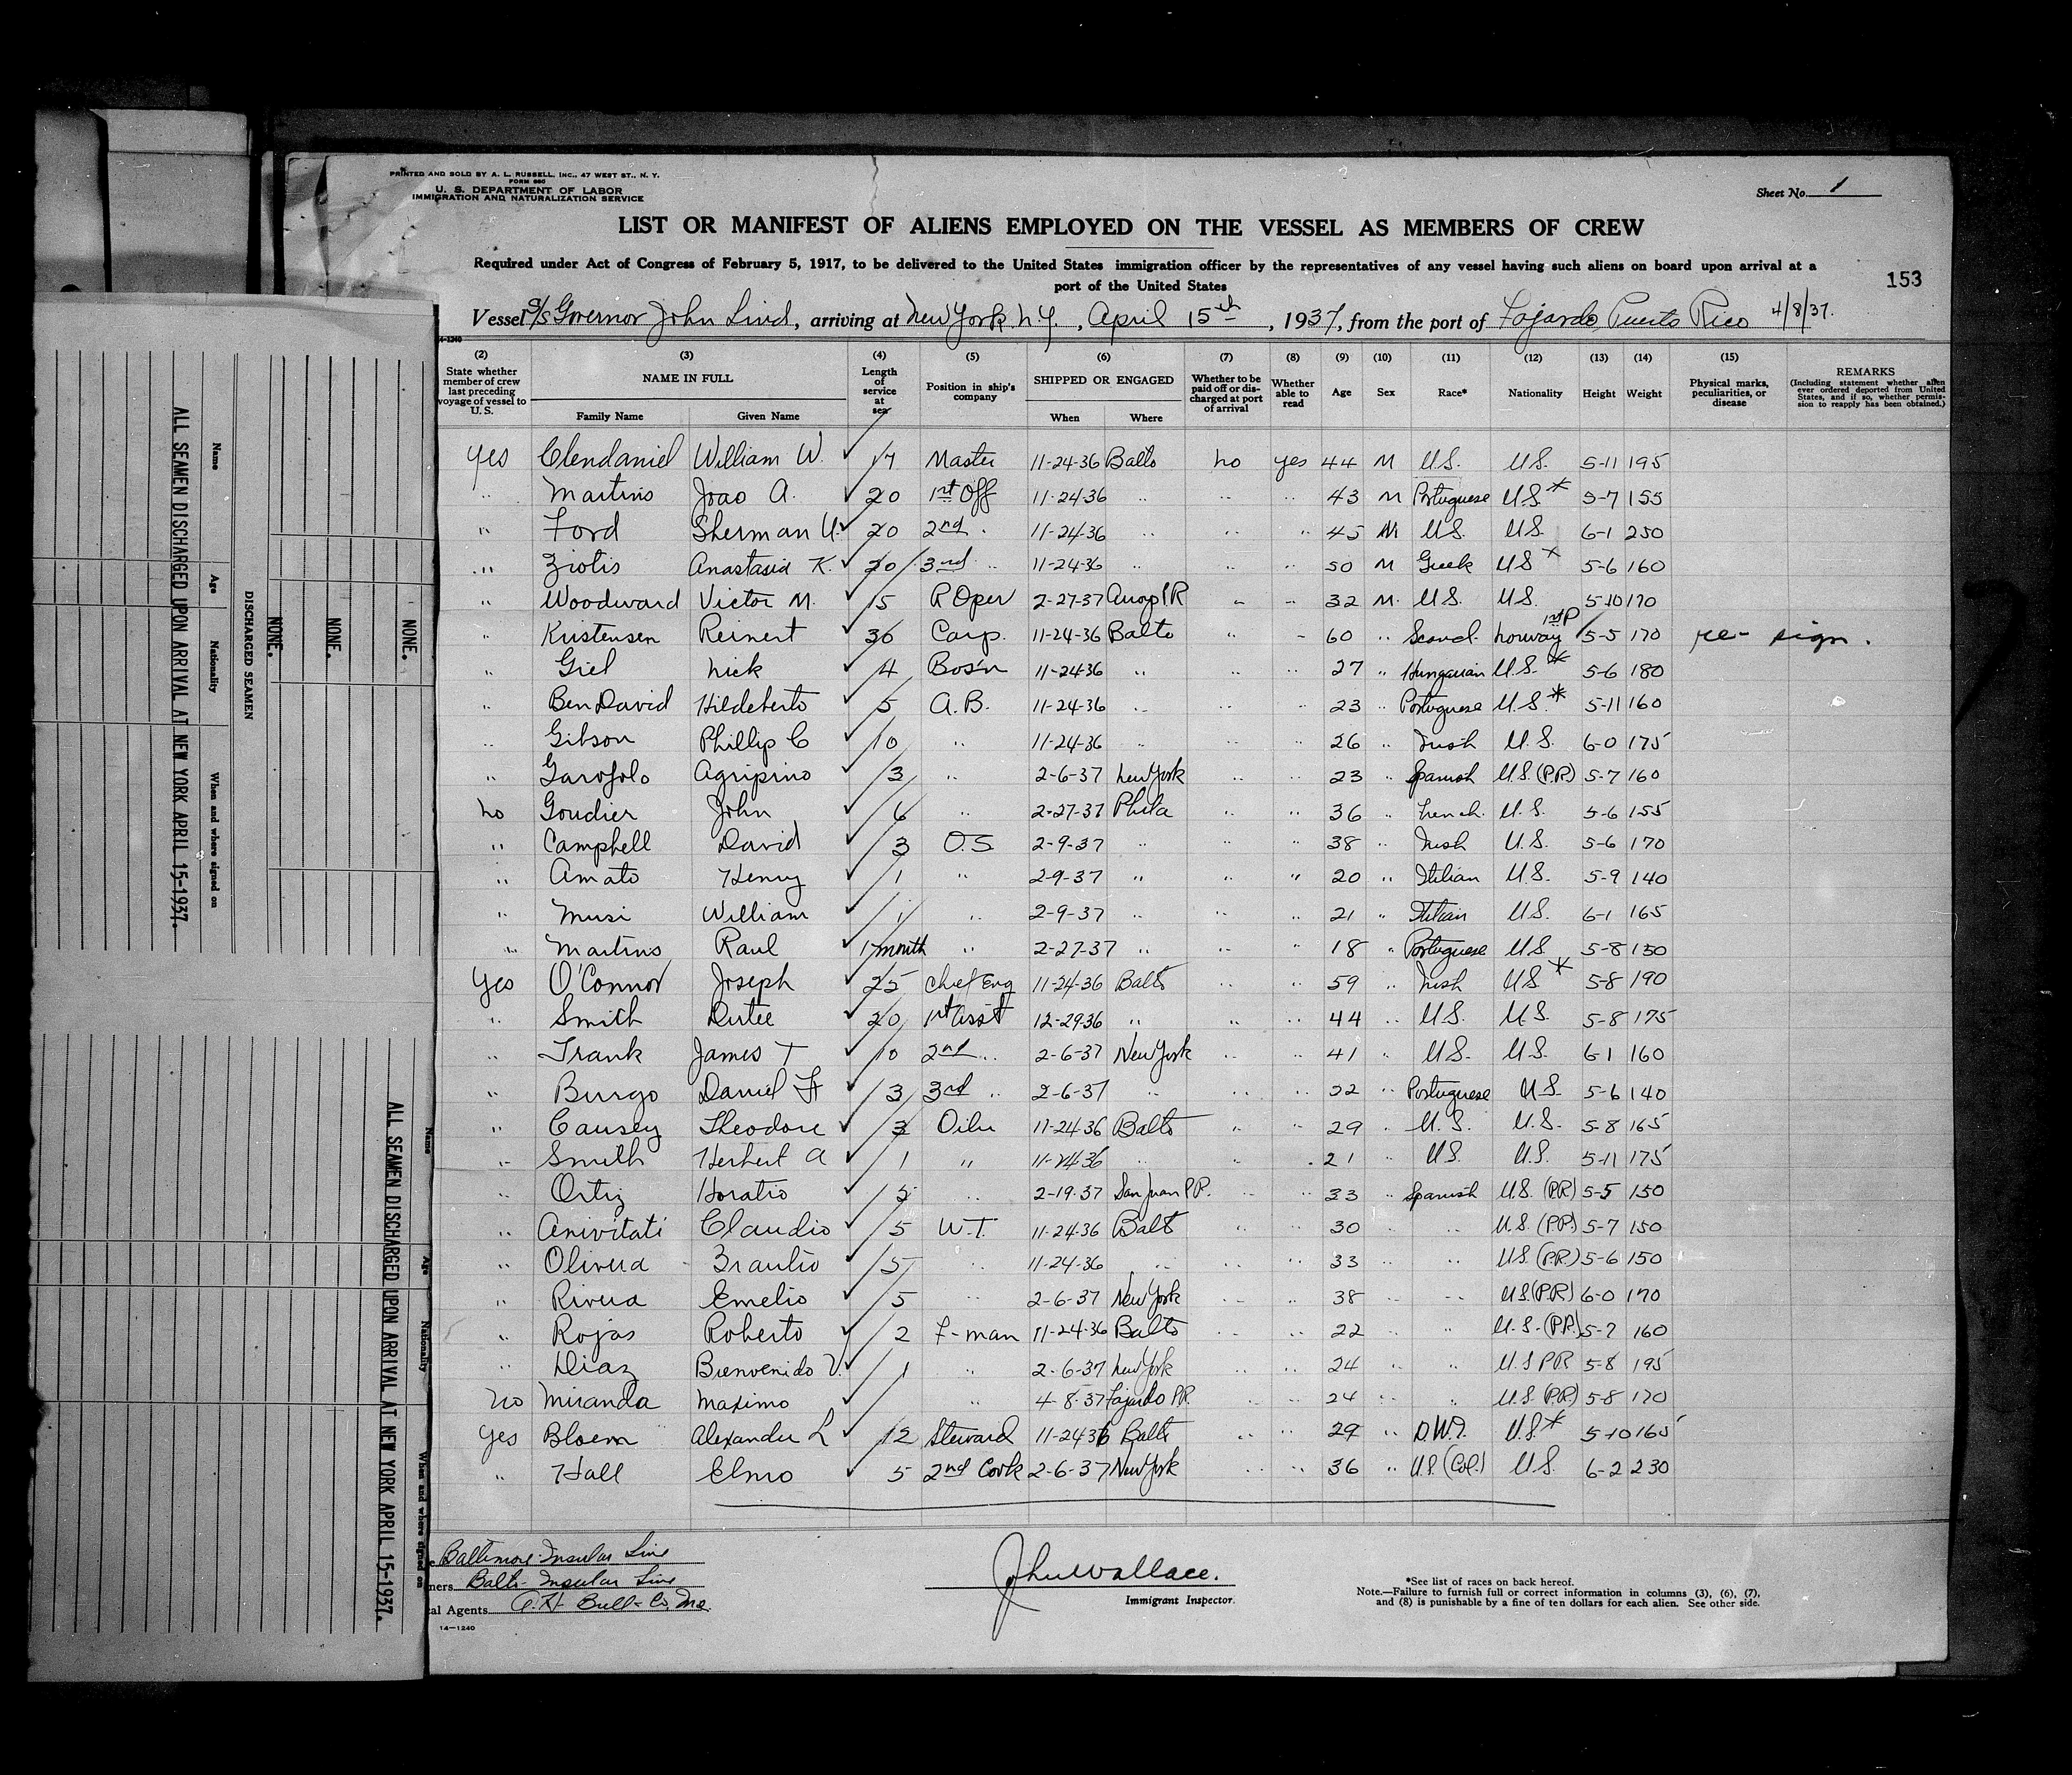 PRINTED AND SOLD BY A. L. RUSSELL, INC., 47 WEST ST., N. Y.
FORM 680
U. S. DEPARTMENT OF LABOR
IMMIGRATION AND NATURALIZATION SERVICE
Sheet No. 1
LIST OR MANIFEST OF ALIENS EMPLOYED ON THE VESSEL AS MEMBERS OF CREW
Required under Act of Congress of February 5, 1917, to be delivered to the United States immigration officer by the representatives of any vessel having such aliens on board upon arrival at a
port of the United States
153
Vessel S/S Governor John Lind, arriving at New York N.Y., April 15th, 1937, from the port of Fajardo Puerto Rico 4/8/37.
14-1240
(2) (3) (4) (5) (6) (7) (8) (9) (10) (11) (12) (13) (14) (15)
State whether member of crew last preceding voyage of vessel to U. S.
NAME IN FULL
Family Name Given Name
Length of service at sea
Position in ship's company
SHIPPED OR ENGAGED
When Where
Whether to be paid off or discharged at port of arrival
Whether able to read
Age Sex Race* Nationality Height Weight
Physical marks, peculiarities, or disease
REMARKS
(Including statement whether alien ever ordered deported from United States, and if so, whether permission to reapply has been obtained.)
Yes Clendaniel William W. ✓ 17 Master 11-24-36 Balto No yes 44 M U.S. U.S. 5-11 195
" Martins Joao A. ✓ 20 1st Off 11-24-36 " " " 43 M Portuguese U.S.* 5-7 155
" Ford Sherman U. ✓ 20 2nd " 11-24-36 " " " 45 M U.S. U.S. 6-1 250
" Ziotis Anastasia K. ✓ 20 3rd " 11-24-36 " " " 50 M Greek U.S.* 5-6 160
" Woodward Victor M. ✓ 5 R Oper 2-27-37 " " 32 M. U.S. U.S. 5-10 170
" Kristensen Reinert ✓ 30 Carp. 11-24-36 Balto " " 60 " Scand. Norway 1st P 5-5 170 re-sign.
" Giel Nick ✓ 4 Bos'n 11-24-36 " " " 27 " Hungarian U.S.* 5-6 180
" BenDavid Hildeberto ✓ 5 A.B. 11-24-36 " " " 23 " Portuguese U.S.* 5-11 160
" Gibson Phillip C ✓ 10 " 11-24-36 " " " 26 " Irish U.S. 6-0 175
" Garofolo Agripino ✓ 3 " 2-6-37 New York " " 23 " Spanish U.S. (P.R.) 5-7 160
No Goudier John ✓ 6 " 2-27-37 Phila " " 36 " French. U.S. 5-6 155
" Campbell David ✓ 3 O.S 2-9-37 " " " 38 " Irish U.S. 5-6 170
" Amato Henry ✓ 1 " 2-9-37 " " " 20 " Itilian U.S. 5-9 140
" Musi William ✓ 1 " 2-9-37 " " " 21 " Itilian U.S. 6-1 165
" Martins Raul ✓ 1 month " 2-27-37 " " " 18 " Portuguese U.S 5-8 150
Yes O'Connor Joseph ✓ 25 Chief Eng 11-24-36 Balto " " 59 " Irish U.S* 5-8 190
" Smith Dutee ✓ 20 1st Asst 12-29-36 " " " 44 " U.S. U.S. 5-8 175
" Trank James T ✓ 10 2nd " 2-6-37 New York " " 41 " U.S. U.S. 6-1 160
" Burgo Daniel F ✓ 3 3rd " 2-6-37 " " " 32 " Portuguese U.S. 5-6 140
" Causey Theodore ✓ 3 Oiler 11-24-36 Balto " " 29 " U.S. U.S. 5-8 165
" Smith Herbert A ✓ 1 " 11-24-36 " " 21 " U.S. U.S. 5-11 175
" Ortiz Horatio ✓ 5 " 2-19-37 San Juan P.R. " " 33 " Spanish U.S. (P.R) 5-5 150
" Anivitati Claudio ✓ 5 W.T. 11-24-36 Balt " " 30 " U.S. (P.P.) 5-7 150
" Olivera Braulio ✓ 5 " 11-24-36 " " " 33 " U.S (P.R.) 5-6 150
" Rivera Emelio ✓ 5 " 2-6-37 New York " " 38 " " U.S.(P.R) 6-0 170
" Rojas Roberto ✓ 2 F-man 11-24-36 Balto " " 22 " " U.S. (P.R.) 5-7 160
" Diaz Bienvenido V. ✓ 1 " 2-6-37 New York " " 24 " " U.S P.R 5-8 195
No Miranda Maximo ✓ " 4-8-37 Fajardo P.R. " " 24 " " U.S (P.R.) 5-8 170
Yes Bloem Alexander L ✓ 12 Steward 11-24-36 Balto " " 29 " D.W.I. U.S* 5-10 165
" Hall Elmo ✓ 5 2nd Cook 2-6-37 New York " " 36 " U.S. (Col.) U.S. 6-2 230
Baltimore Insular Line
ners Balto- Insular Line
al Agents A.H. Bull & Co. Inc.
14-1240
John Wallace.
Immigrant Inspector.
*See list of races on back hereof.
Note.—Failure to furnish full or correct information in columns (3), (6), (7),
and (8) is punishable by a fine of ten dollars for each alien. See other side.
ALL SEAMEN DISCHARGED UPON ARRIVAL AT NEW YORK APRIL 15-1937.
Name Age Nationality When and where signed on
DISCHARGED SEAMEN
NONE.
NONE.
NONE.
ALL SEAMEN DISCHARGED UPON ARRIVAL AT NEW YORK APRIL 15-1937.
Name Age Nationality When and where signed on